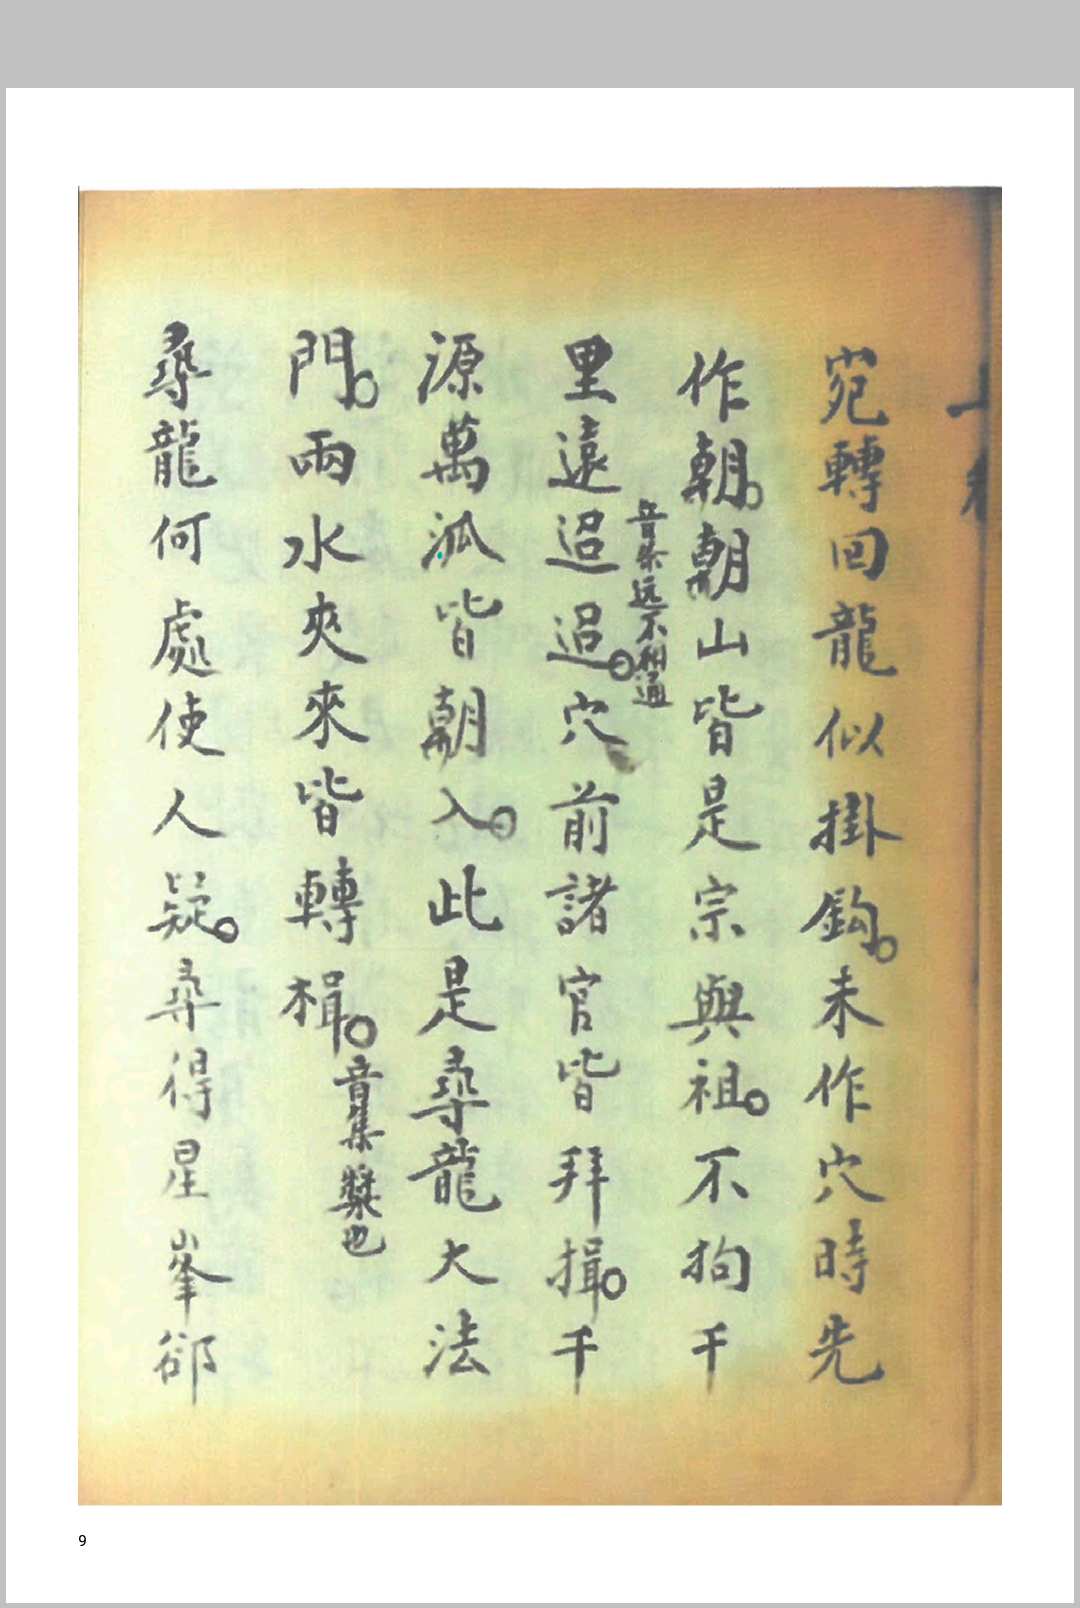 宛轉回龍似掛鈎未作穴時先
作朝朝山皆是宗與祖不拘千
里遠迢迢穴前諸官皆拜揖千
源萬派皆朝入此是尋龍大法
門兩水夾來皆轉楫
音集槳也
尋龍何處使人疑尋得星峯卻
9